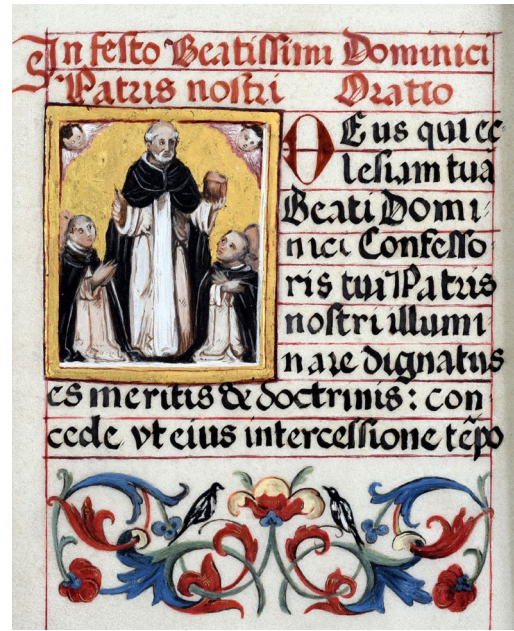 In festo Beatissimi Dominici
Patris nostri Oratio
DEus qui ec
lesiam tua
Beati Domi-
nici Confesso
ris tui Patris
nostri illumi
nare dignatus
es meritis & doctrinis: con
cede vt eius intercessione tẽpo